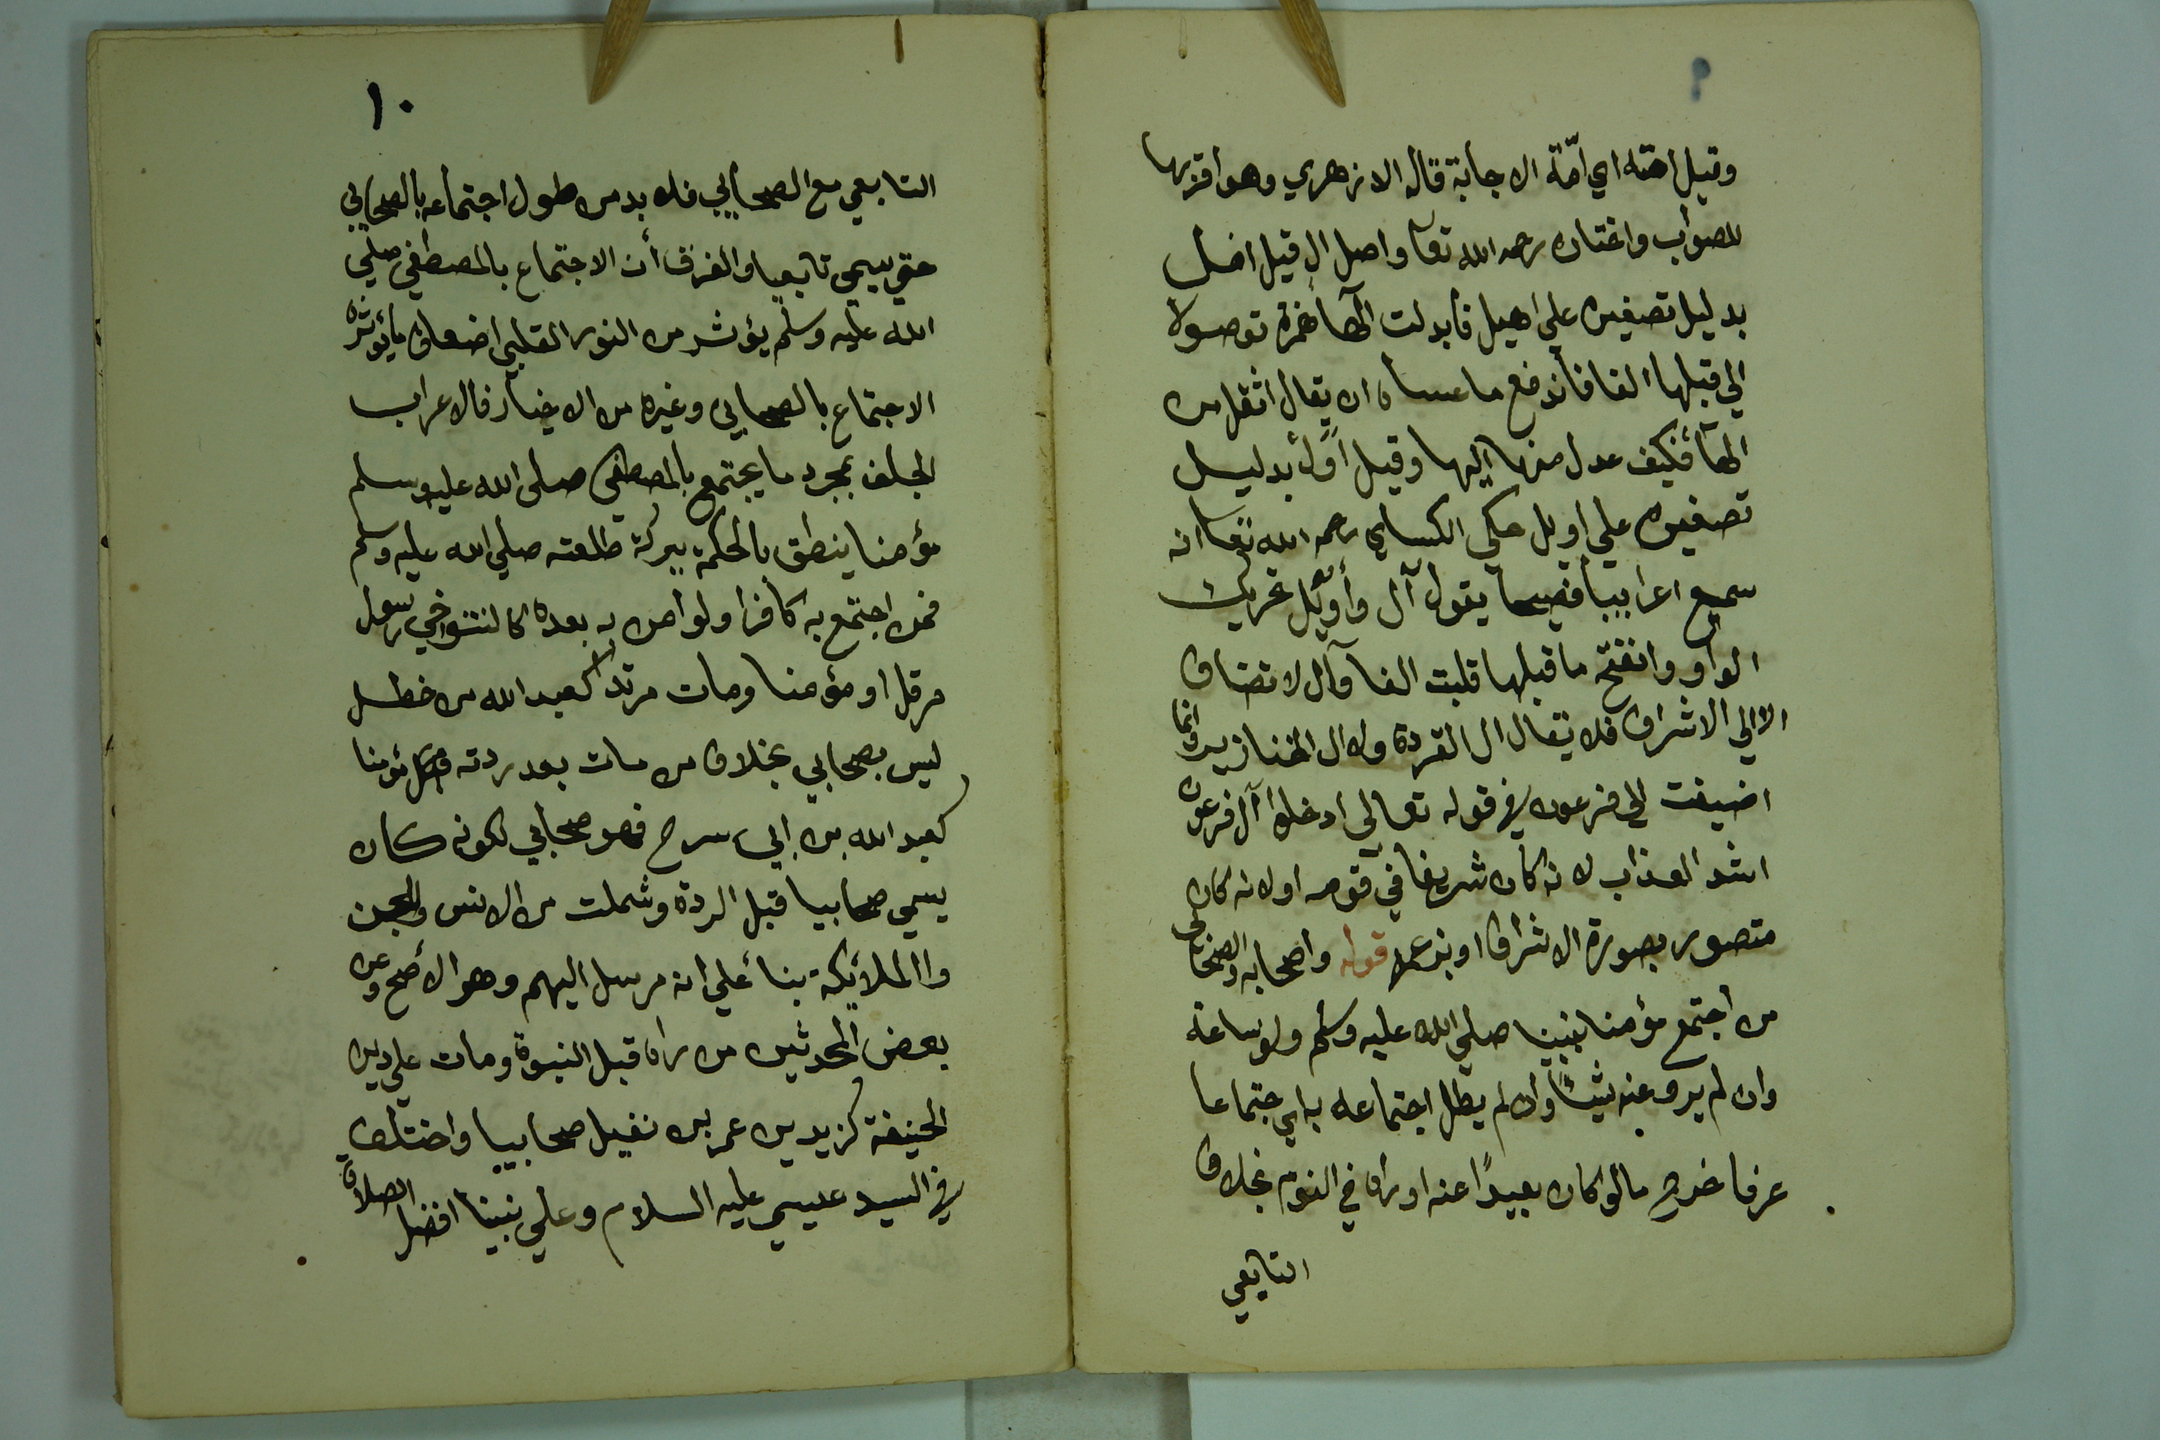 وقيل امته اي امّة الاجابة قاله الازهري وهو اقربها
للصواب واختاره رحمه الله تعا واصل ال قيل اهل
بدليل تصغيره علي اهيل فأبدلت الهآ همزة توصولا
الي قبلها الفا فأندفع ما عساه ان يقال اثقل من
الهآ فكيف عدل منها اليها وقيل اَول بدليل
تصغيره علي اويل حكي الكساي رحمه الله تعا انه
سميع اعرابيا فصيحا يقول آل وأويل تحركت
الواو وانفتح ما قبلها قلبت الفا وآل لا تضاف
الا الي الاشراف فلا يقال ال القردة ولا ال الخنازير وانما
اضيفت الي فرعون في قوله تعالي ادخلوا آل فرعون
اشد العذاب لانه كان شريفا في قومه او لانه كان
متصور بصورة الاشراف او بزعمه قوله واصحابه والصحابي
من اجتمع مؤمنا بنبينا صلي الله عليه وسلم ولو ساعة
وان لم يرو عنه شيئًا وان لم يطل اجتماعه به اي اجتماعا
عرفا خرج ما لو كان بعيدًا عنه او راه في النوم بخلاف
التابعي
١٠
التابعي مع الصحابي فلا بد من طول اجتماعه بالصحابي
حتي يسمي تابعيا والفرق أن الاجتماع بالمصطفي صلي
الله عليه وسلم يؤثر من النور القلبي اضعاف ما يؤثره
الاجتماع بالصحابي وغيره من الاخيار فالاعراب
الجلف بمجرد ما يجتمع بالمصطفي صلى الله عليه وسلم
مؤمنا ينطق بالحكمة ببركة طلعته صلي الله عليه وسلم
فمن اجتمع به كافرا ولو امن به بعده كالتنواخي رسول
مرقل او مؤمنا ومات مرتدا كعبد الله من خطل
ليس بصحابي بخلاف من مات بعد ردته مؤمنا
كعبد الله بن ابي سرح فهو صحابي لكونه كان
يسمي صحابيا قبل الردة وشملت من الانس والجن
واالملائكة بنا ئعلي انه مرسل اليهم وهو الأصح وعن
بعض المحدثين من راه قبل النبوة ومات علي دين
الحنيفة كزيد بن عمر بن نفيل صحابيا واختلف
في السيد عيسي عليه السلام وعلي نبينا افضل الصلاة